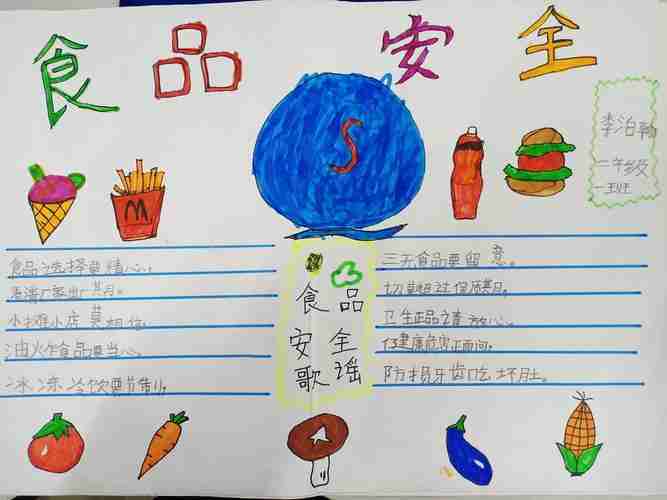 食品安全
S
李泊
二年级
一班
M
食品选择要精心,
看清厂家出厂期。
小摊小店莫相信,
油火炸食品要当心,
冰凉冷饮要节制,
食品
安全
歌谣
三无食品要留意。
切莫超过保质期。
卫生正品请放心。
健康危害正面问,
防损牙齿吃坏肚。